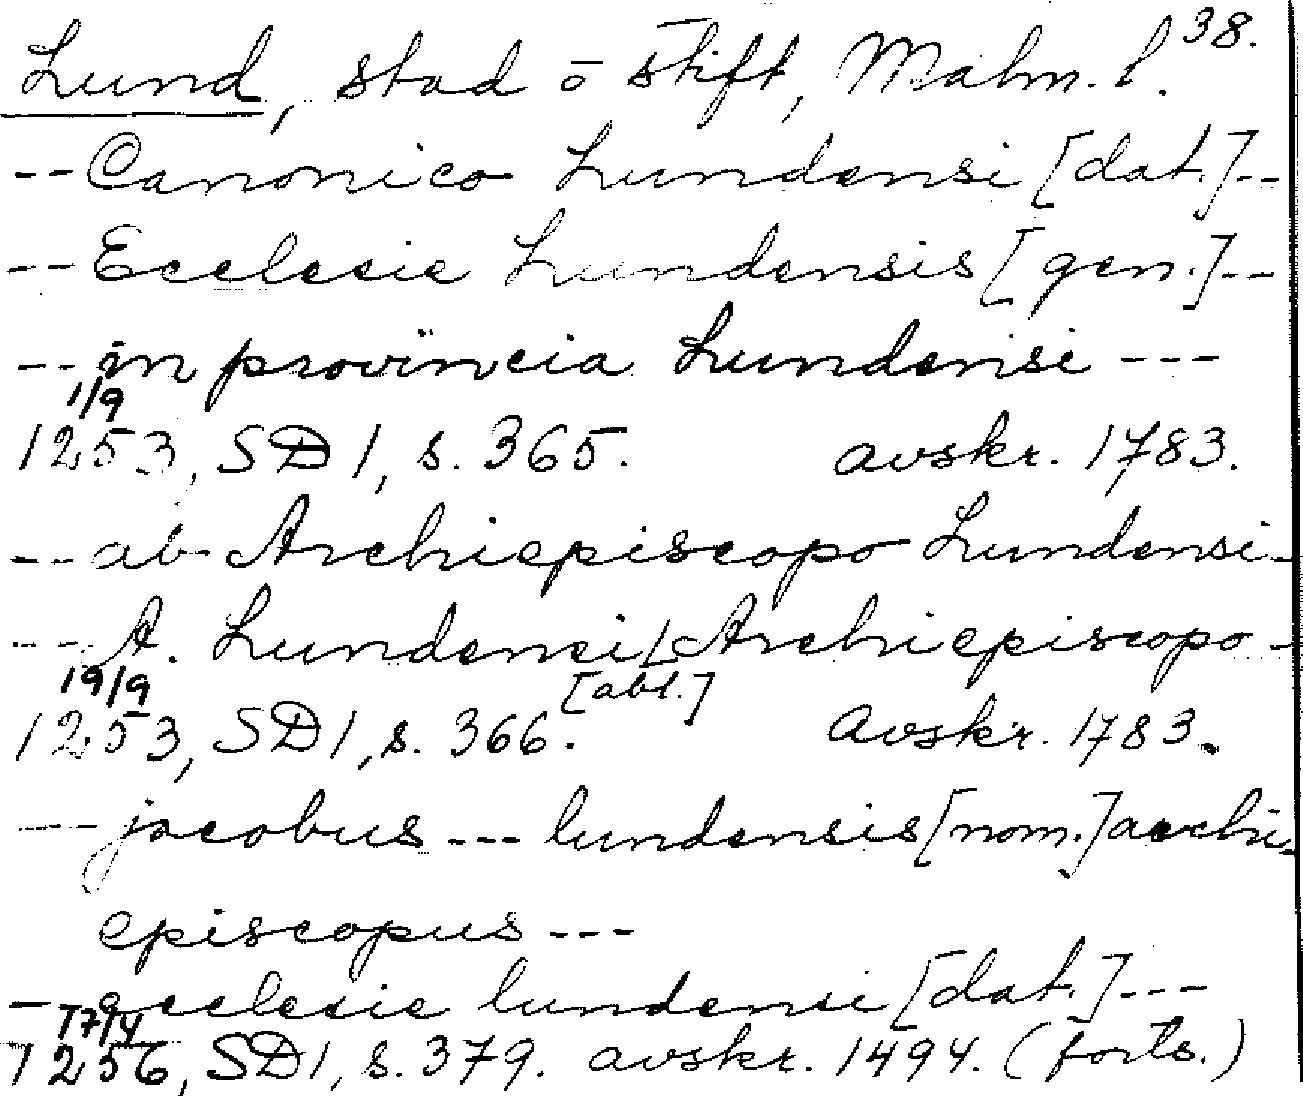 38.
Lund, stad o stift, Malm. l.
-- Canonico Lundensi [dat.] --
-- Ecclesie Lundensis [gen.] --
-- in provincia Lundensi ---
1/9
1253, SD 1, s. 365. avskr. 1783.
-- ab Archiepiscopo Lundensi -
--- A. Lundensi Archiepiscopo -
19/9 [abl.]
1253, SD 1, s. 366. avskr. 1783.
--- jacobus --- lundensis [nom.] archi-
episcopus ---
- ecclesie lundensi [dat.] ---
17/4
1256, SD 1, s. 379. avskr. 1494. (forts.)